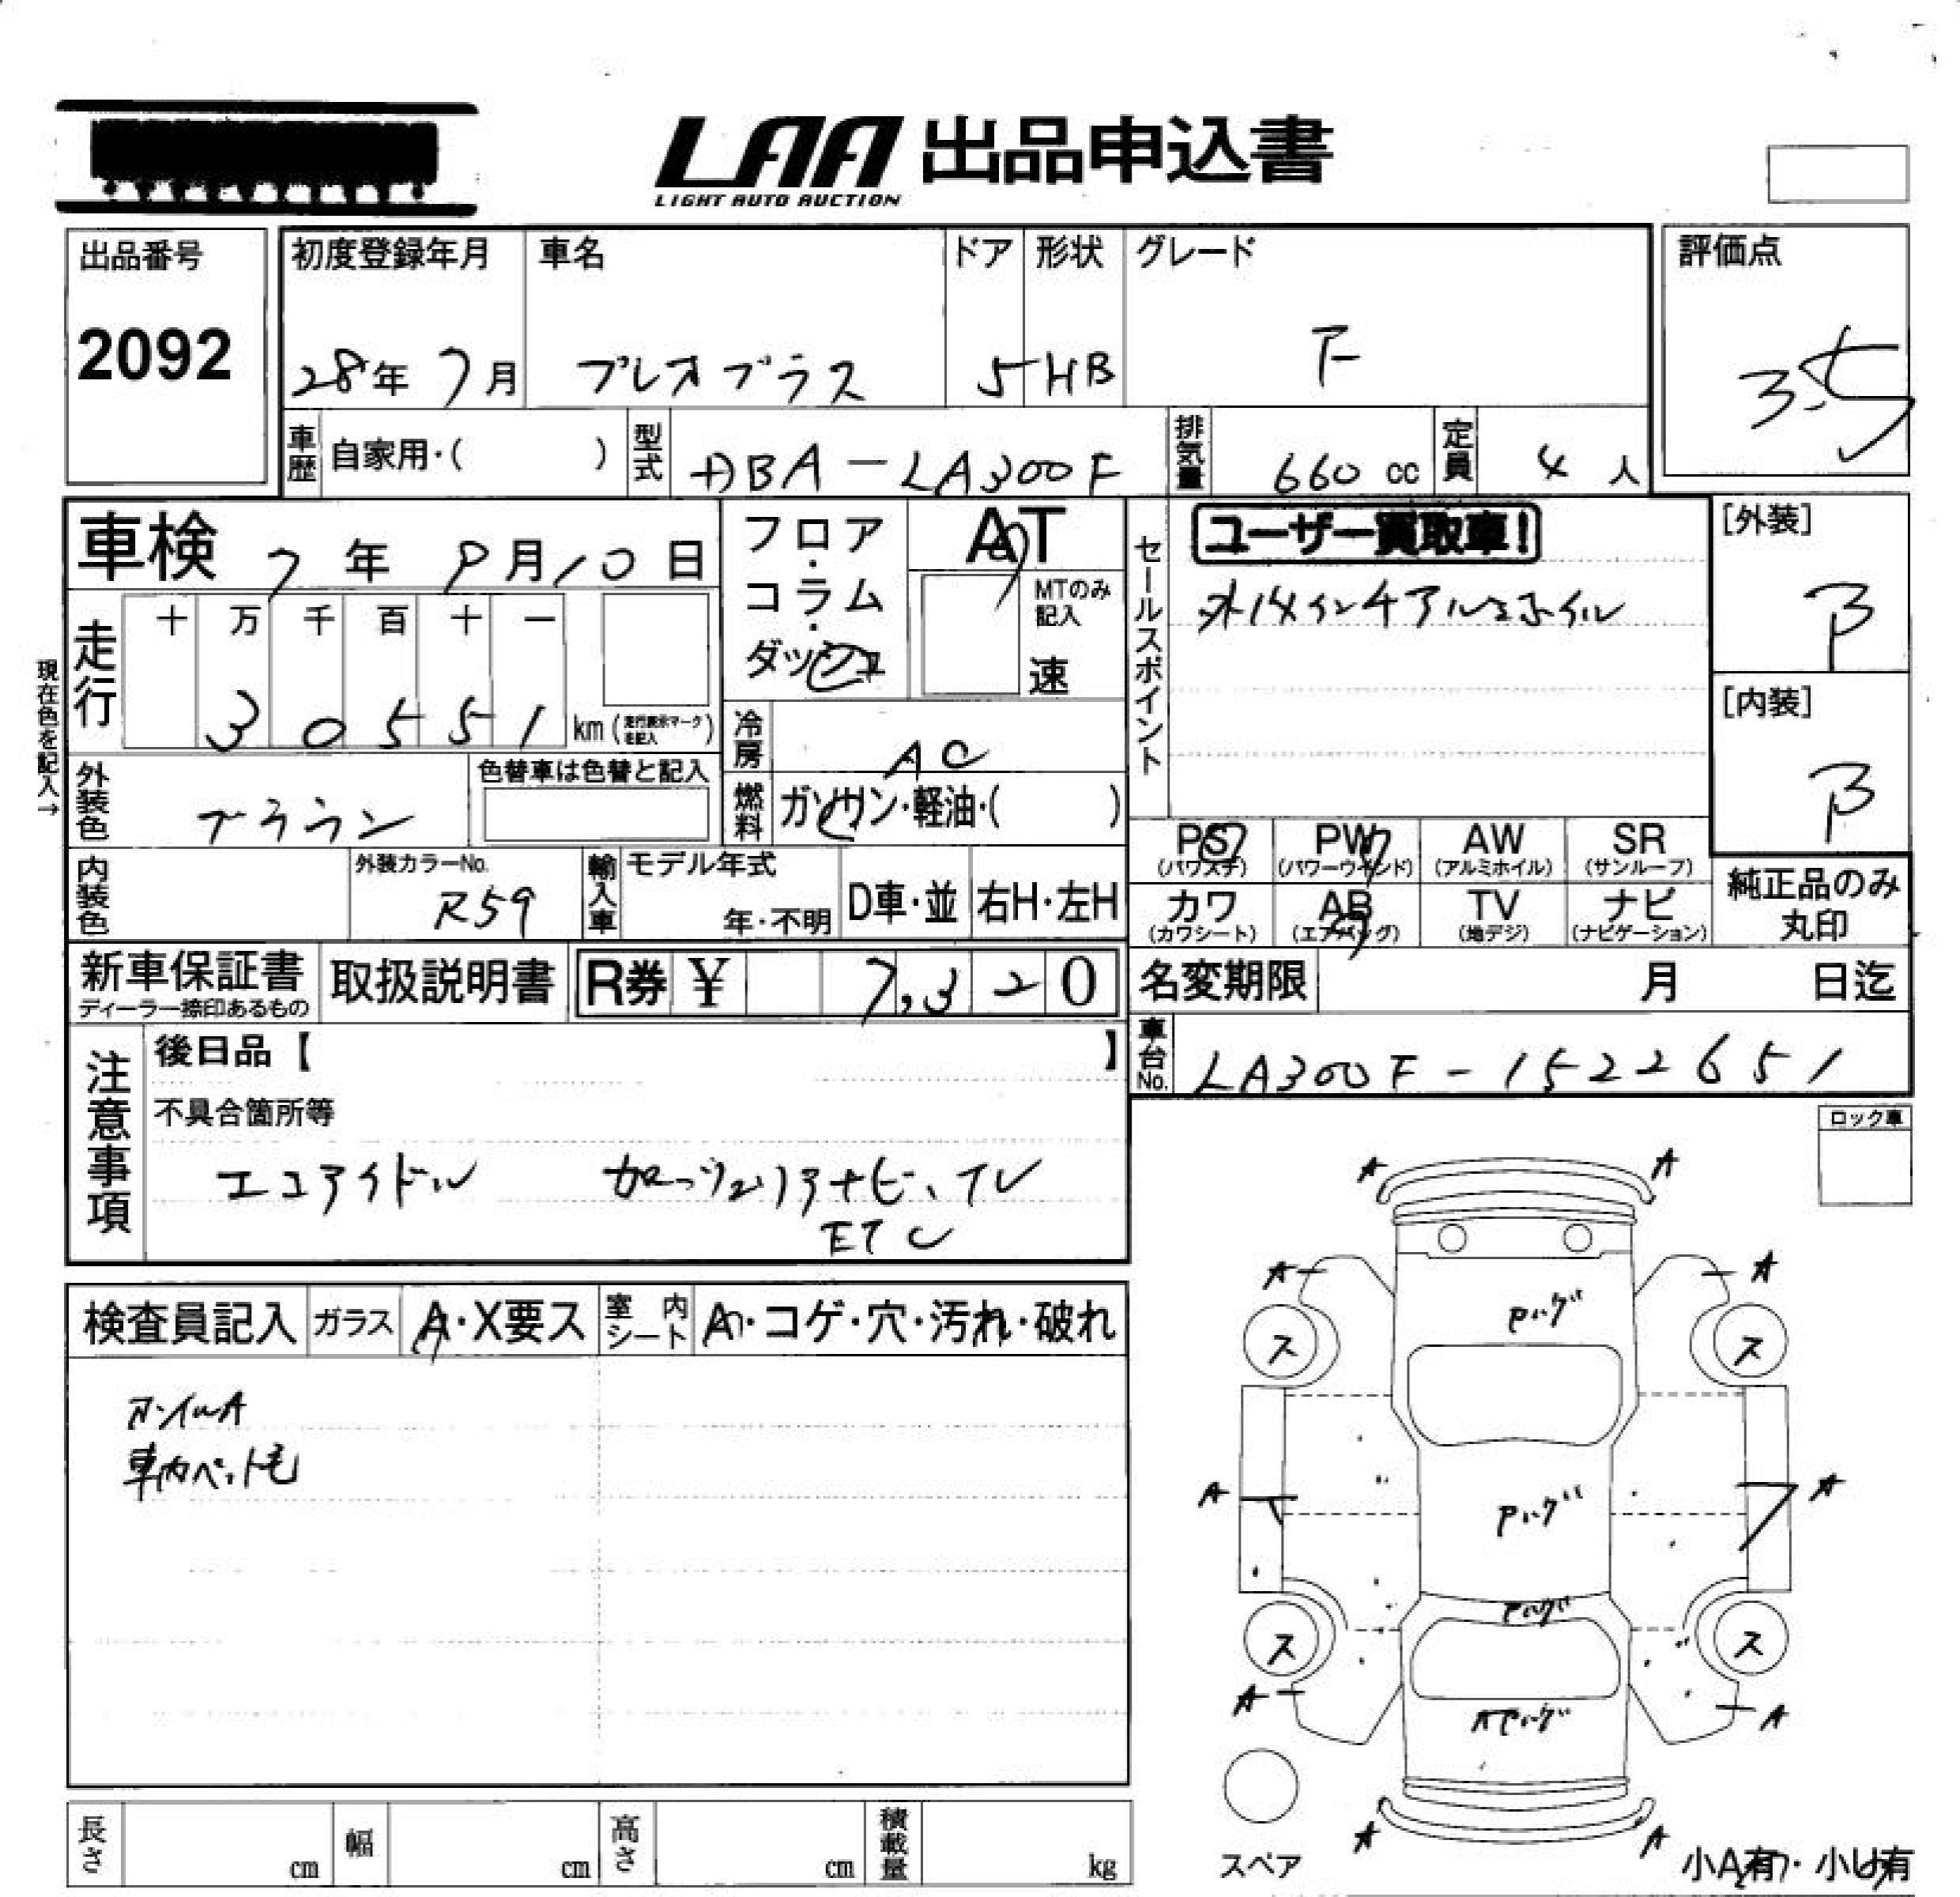 LAA 出品申込書
LIGHT AUTO AUCTION
出品番号
2092
初度登録年月
28年 7月
車名
プレオプラス
ドア
5
形状
HB
グレード
F
評価点
3.5
車歴
自家用・( )
型式
DBA-LA300F
排気量
660 cc
定員
4 人
車検 7年 8月10日
フロア・コラム・ダッシュ
AT
MTのみ記入
速
現在色を記入→
走行
十 万 千 百 十 一
3 0 5 5 1 km (走行表示マークを記入)
冷房
AC
燃料
ガソリン・軽油・( )
外装色
ブラウン
色替車は色替と記入
内装色
外装カラーNo.
R59
輸入車
モデル年式
年・不明
D車・並
右H・左H
セールスポイント
ユーザー買取車!
外14インチアルミホイル
[外装]
B
[内装]
B
PS
(パワステ)
PW
(パワーウインド)
AW
(アルミホイル)
SR
(サンルーフ)
カワ
(カワシート)
AB
(エアバッグ)
TV
(地デジ)
ナビ
(ナビゲーション)
純正品のみ
丸印
新車保証書
ディーラー捺印あるもの
取扱説明書
R券 ¥ 7,320
名変期限
月 日迄
車台No.
LA300F-1522651
注意事項
後日品【 】
不具合箇所等
エコアイドル
ナビ、TV
ETC
ロック車
検査員記入
ガラス
A・X要ス
室内シート
A・コゲ・穴・汚れ・破れ
ホイルA
車内ペット毛
長さ
cm
幅
cm
高さ
cm
積載量
kg
A A
A A
Pハゲ
ス ス
A A
Pハゲ
Pハゲ
ス ス
A A
APハゲ
A A
スペア
小A有・小U有